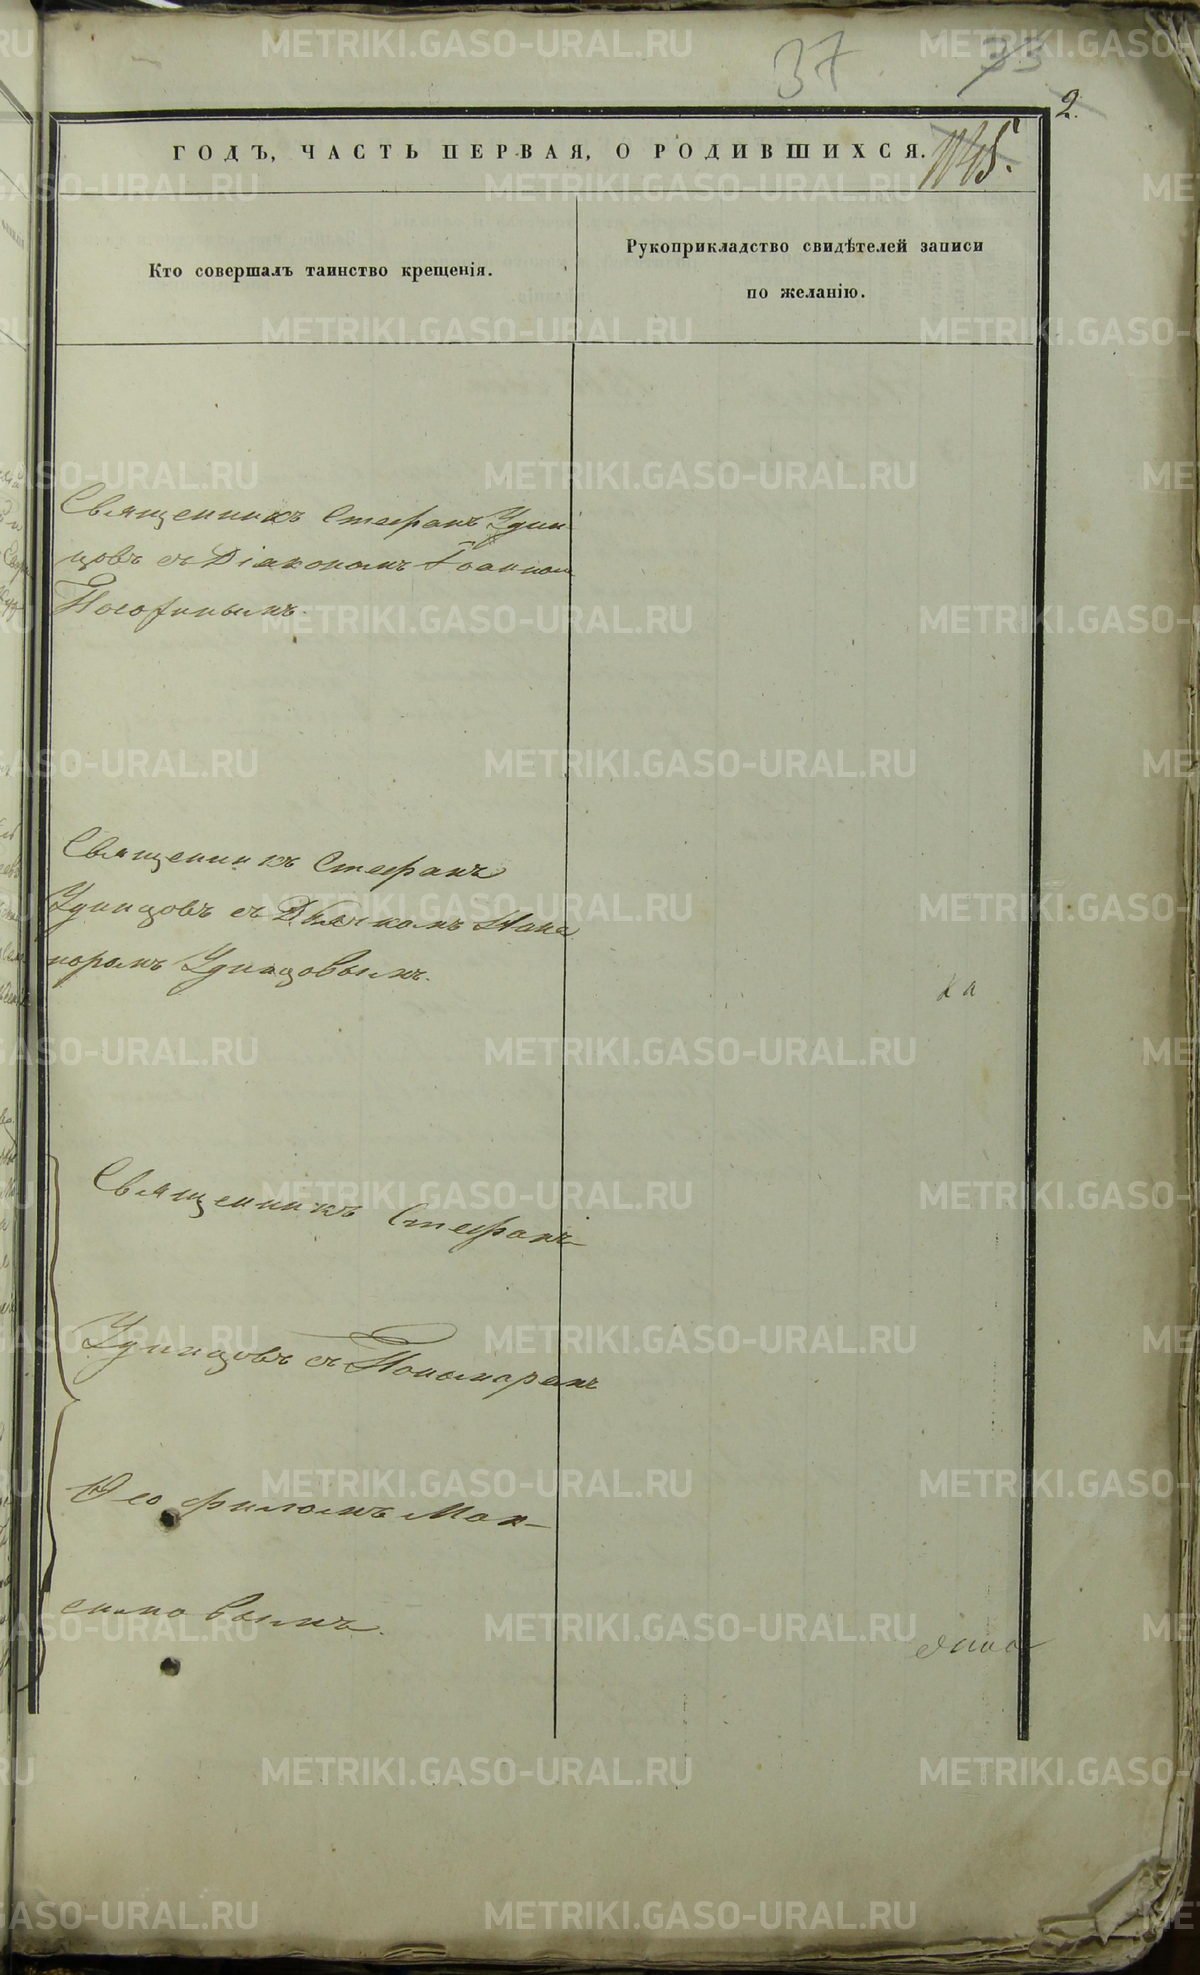 37
33
2.
ГОДЪ, ЧАСТЬ ПЕРВАЯ, О РОДИВШИХСЯ.
Кто совершалъ таинство крещенія.
Рукоприкладство свидѣтелей записи
по желанію.
Священникъ Стефанъ Удин-
цовъ съ Діакономъ Іоанном
Священникъ Стефанъ
Удинцовъ съ Дьячкомъ Ника
норомъ Удинцовымъ.
Священникъ Стефанъ
Удинцовъ съ Пономаремъ
Ѳеофиломъ Мак-
симовымъ.
METRIKI.GASO-URAL.RU